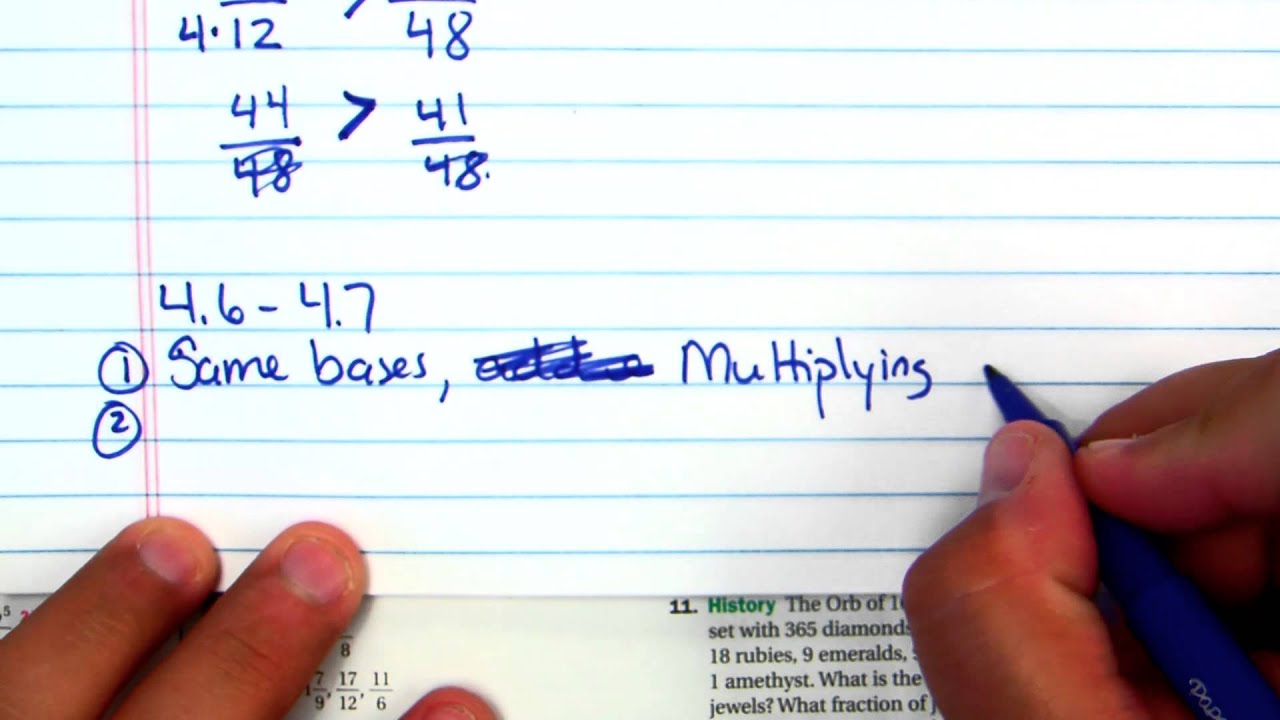 4·12 > 48
44 > 41
48 48.
4.6 - 4.7
① Same bases, Multiplying
②
11. History The Orb of
set with 365 diamonds
18 rubies, 9 emeralds,
1 amethyst. What is the
jewels? What fraction of
5
8
7/9, 17/12, 11/6